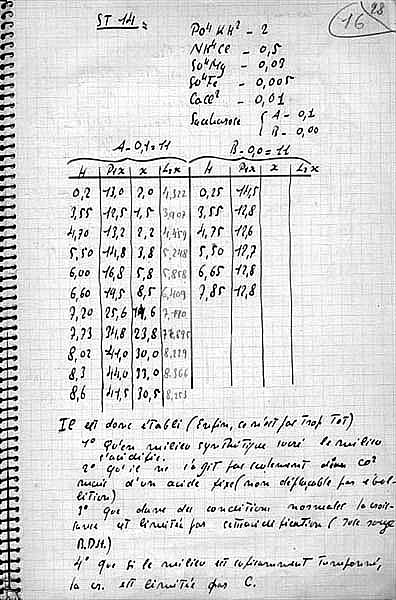 28
16
ST 14 =
Po4 KH2 - 2
NH4Cl - 0,5
So4Mg - 0,03
So4Fe - 0,005
CaCl2 - 0,01
Saccharose { A - 0,1
B - 0,00
A - 0,1 = 11 B - 0,0 = 11
H P1x x L2x H P1x x L2x
0,2 13,0 2,0 4,322 0,25 14,5
3,55 12,5 1,5 3,907 3,55 12,8
4,70 13,2 2,2 4,459 4,75 12,6
5,50 14,8 3,8 5,248 5,50 12,7
6,00 16,8 5,8 5,858 6,65 12,8
6,60 19,5 8,5 6,409 7,85 12,8
7,20 25,6 14,6 7,190
7,73 34,8 23,8
8,02 41,0 30,0 8,229
8,3 44,0 33,0 8,366
8,6 41,5 30,5 8,253
Il est donc établi (Enfin, ce n'est pas Trop Tôt)
1° Qu'en milieu synthétique sucré le milieu
s'acidifie.
2° qu'il ne s'agit pas seulement d'un CO2
mais d'un acide fixe (non déplaçable par ébul-
lition)
3° que dans des conditions normales la crois-
sance est limitée par cette acidification (
B.D.H.)
4° que si le milieu est suffisamment tamponné,
la cr. est limitée par C.